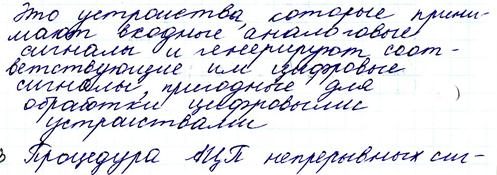 Это устройства, которые прини-
мают входные аналоговые
сигналы и генерируют соот-
ветствующие им цифровые
сигналы, пригодные для
обработки цифровыми
устройствами
Процедура АЦП непрерывных сиг-